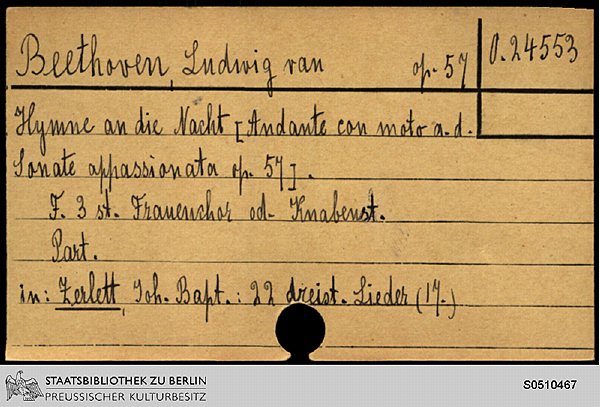 Beethoven, Ludwig van op. 57
O. 24553
Hymne an die Nacht [Andante con moto a. d.
Sonate appassionata op. 57].
F. 3 st. Frauenchor od. Knabenst.
Part.
in: Zerlett, Joh. Bapt.: 22 dreist. Lieder (17.)
STAATSBIBLIOTHEK ZU BERLIN
PREUSSISCHER KULTURBESITZ
S0510467